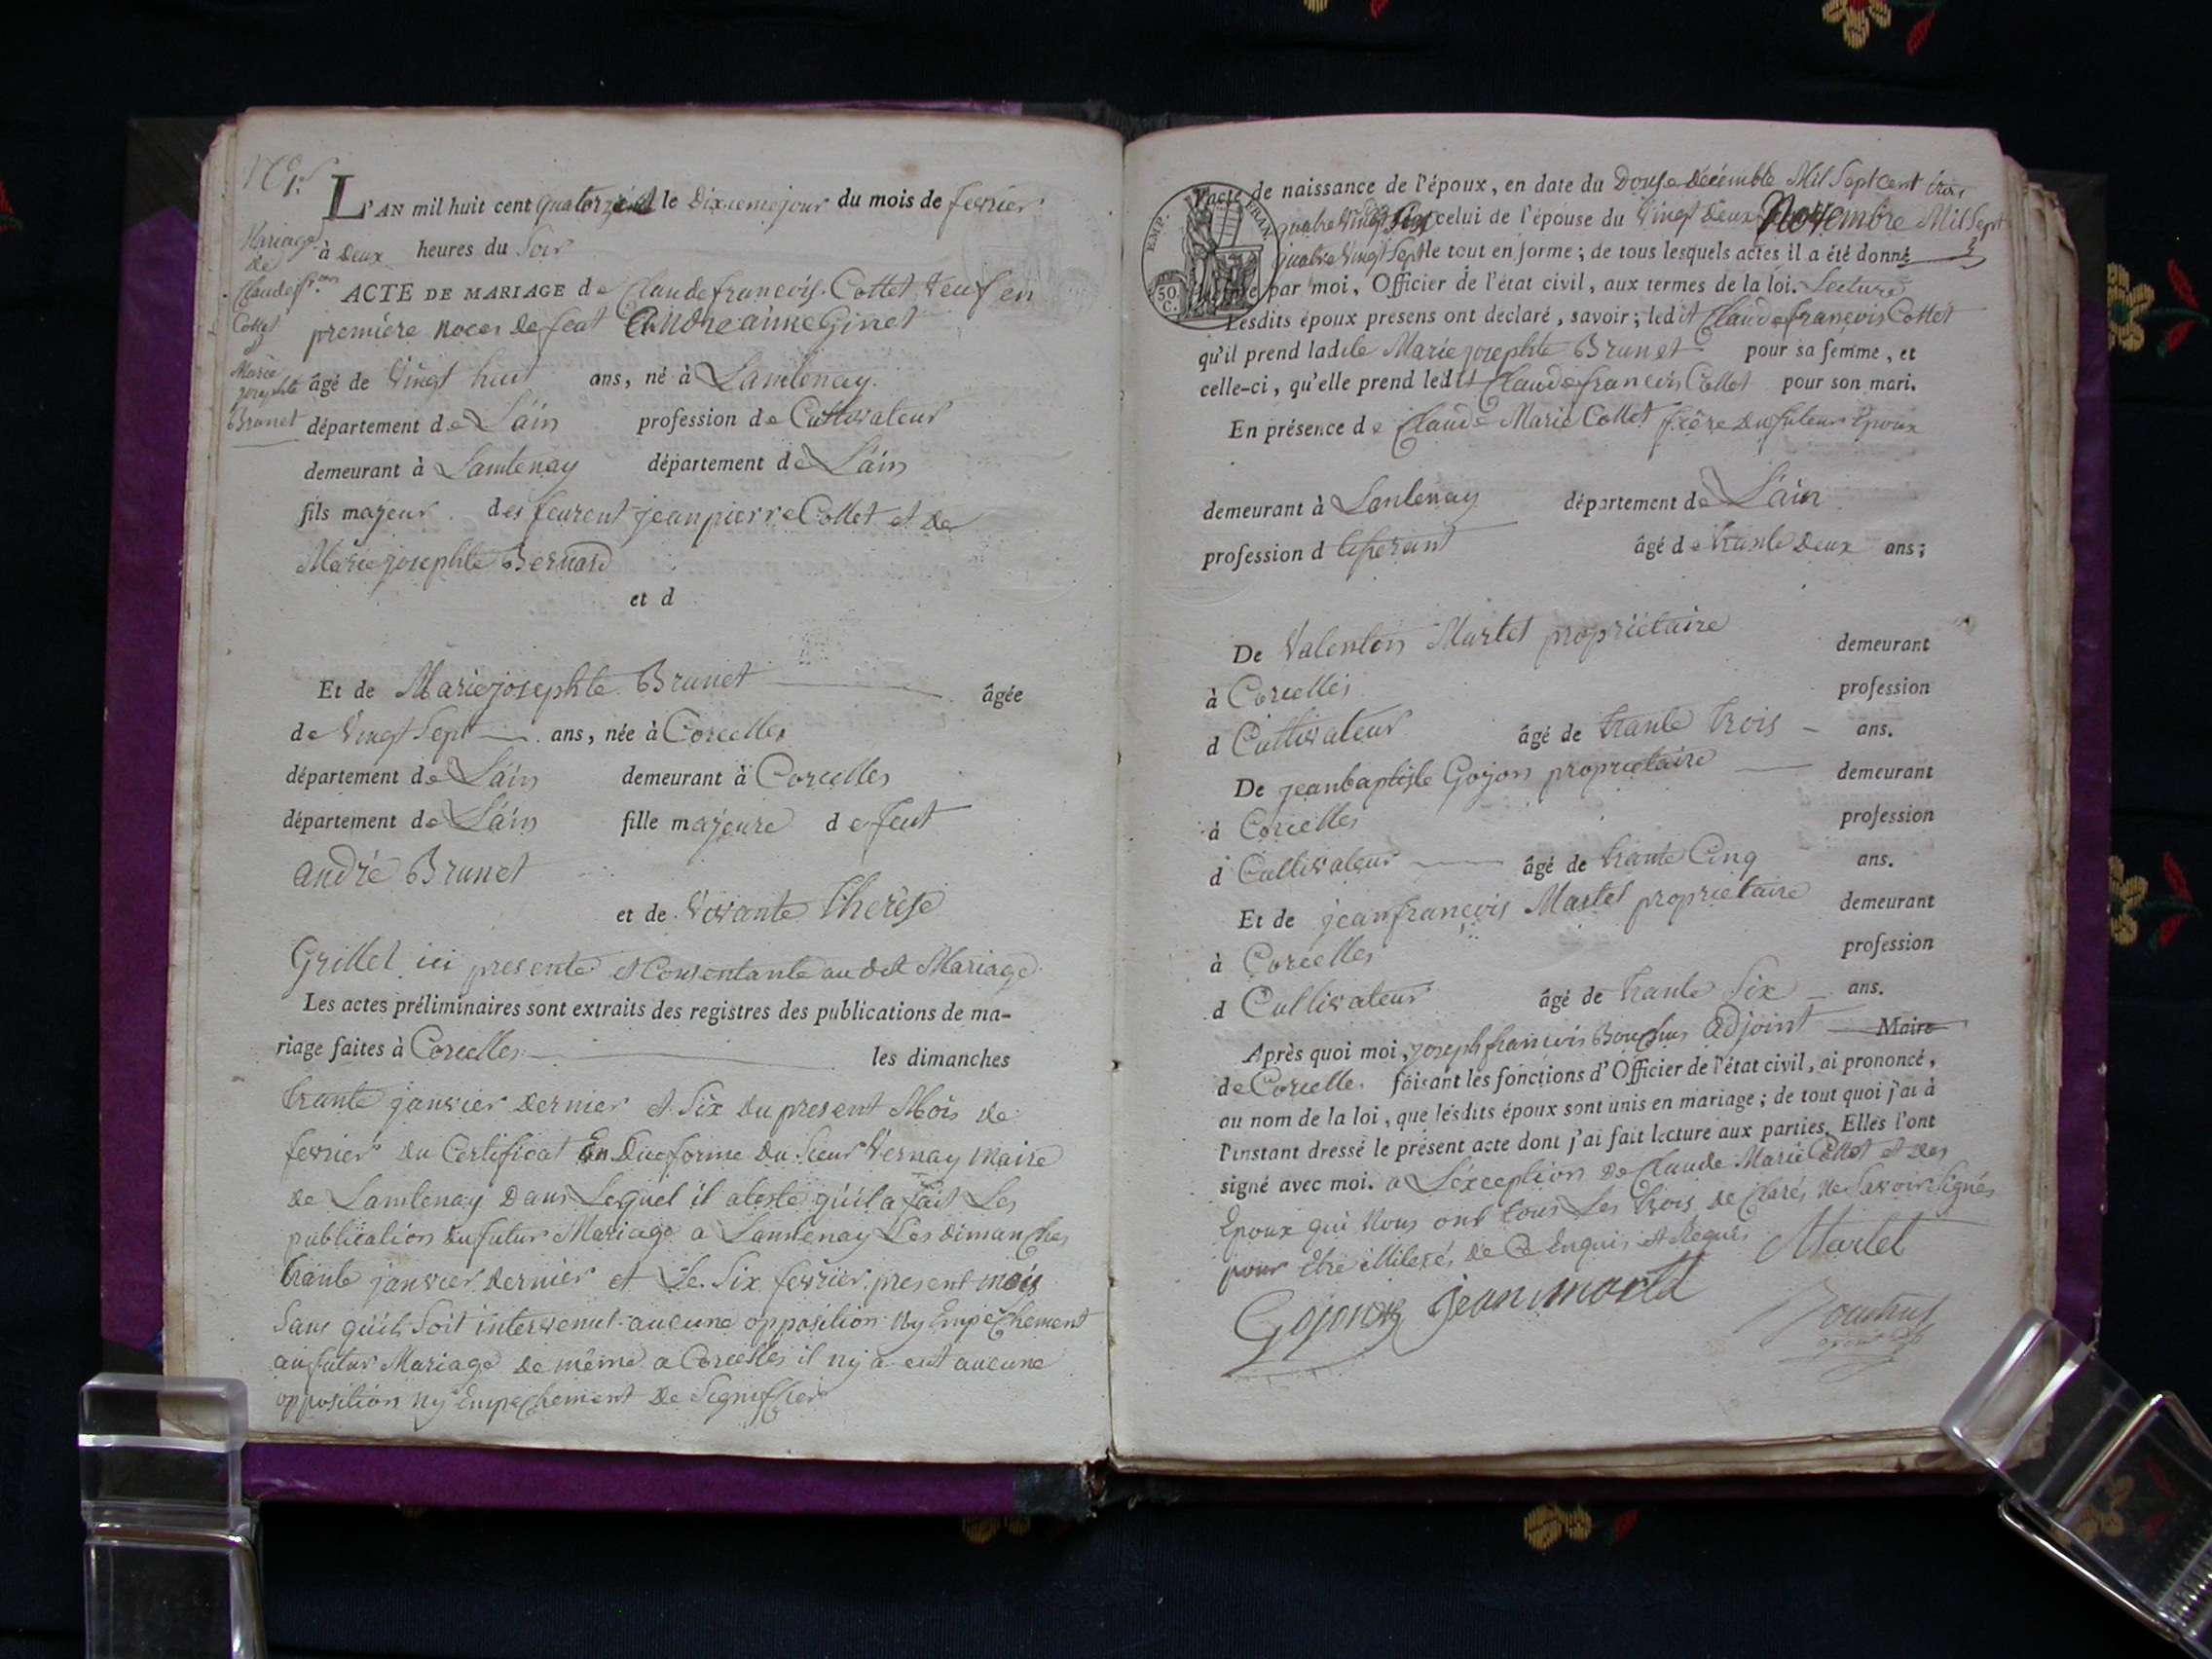 N° 1er
Mariage
de
Claude fr.ois
Collet
et
Marie
josephte
Brunet
L'AN mil huit cent quatorze le Dixieme jour du mois de fevrier
à Deux heures du Soir
ACTE DE MARIAGE de Claude françois Collet Veuf en
premiére noces de feut Andréanne Ginet
âgé de Vingt huit ans, né à Lantenay
département de L'áin profession de Cultivateur
demeurant à Lantenay département de L'áin
fils majeur des feurent jean pierre Collet et de
Marie josephte Bernard
et d
Et de Marie josephte Brunet âgée
de Vingt Sept ans, née à Corcelles
département de L'áin demeurant à Corcelles
département de L'áin fille majeure de feut
andré Brunet
et de Vivante Therése
Grillet ici presente et Consentante au dit Mariage
Les actes préliminaires sont extraits des registres des publications de ma-
riage faites à Corcelles les dimanches
trante janvier dernier et Six du present Mois de
fevrier du Certificat En Due forme du Sieur Vernay maire
de Lantenay Dans Lequel il ateste qu'il a fait Les
publication du futur Mariage a Lantenay Les dimanches
trante janvier dernier et Le Six fevrier present mois
Sans qu'il Soit intervenut aucune opposition Ny Empechement
au futur Mariage de même a Corcelles il ny a eut aucune
opposition Ny Empechement de Signiffier
EMP. FRAN.
50 C.
l'acte de naissance de l'époux, en date du Douse Décémble Mil Sept cent
quatre Vingt Six celui de l'épouse du Vingt Deux Novembre Mil Sept
quatre Vingt Sept le tout en forme; de tous lesquels actes il a été donné
par moi, Officier de l'état civil, aux termes de la loi. Lecture
Lesdits époux présens ont déclaré, savoir; ledit Claude françois Collet
qu'il prend ladite Marie josephte Brunet pour sa femme, et
celle-ci, qu'elle prend ledit Claude françois Collet pour son mari.
En présence de Claude Marie Collet frére du futeur Epoux
demeurant à Lantenay département de L'áin
profession d âgé de trante Deux ans;
De Valentin Martel propriétaire demeurant
à Corcelles profession
d Cultivateur âgé de trante trois ans.
De jean baptiste Gojon propriétaire demeurant
à Corcelles profession
d Cultivateur âgé de trante Cinq ans.
Et de jean françois Martel propriétaire demeurant
à Corcelles profession
d Cultivateur âgé de trante Six ans.
Après quoi moi, joseph françois Bouchus adjoint Maire
de Corcelle faisant les fonctions d'Officier de l'état civil, ai prononcé,
au nom de la loi, que lesdits époux sont unis en mariage; de tout quoi j'ai à
l'instant dressé le présent acte dont j'ai fait lecture aux parties. Elles l'ont
signé avec moi. a L'éxception de Claude Marie Collet et des
Epoux qui Nous ont tous Les trois declarés Ne Savoir Signés
pour Etre illiterés de Ce Enquis et Requis Martel
Gojon jean martel
Bouchus